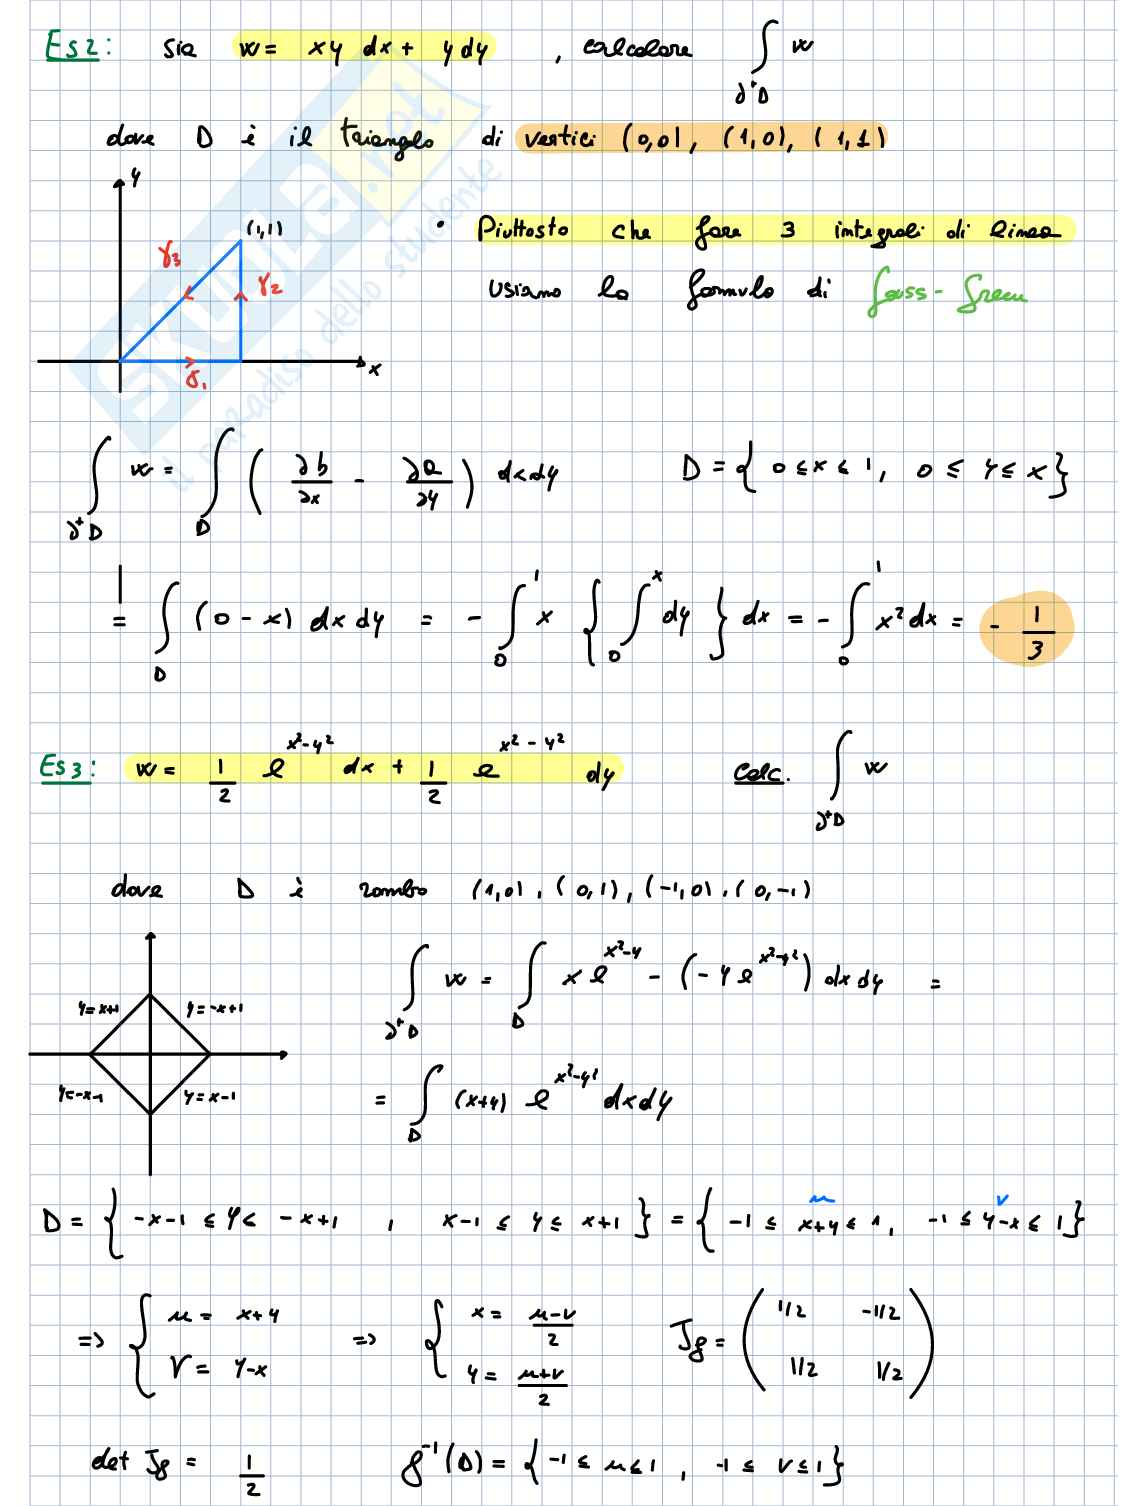 Es2: sia w = xy dx + y dy , calcolare ∫_{∂⁺D} w
dove D è il triangolo di vertici (0,0), (1,0), (1,1)
y
(1,1)
γ3
γ2
γ1
x
• Piuttosto che fare 3 integrali di linea
usiamo la formula di Gauss-Green
∫_{∂⁺D} w = ∫_D ( ∂b/∂x - ∂a/∂y ) dxdy D = { 0 ≤ x ≤ 1, 0 ≤ y ≤ x }
= ∫_D (0 - x) dx dy = - ∫_0^1 x { ∫_0^x dy } dx = - ∫_0^1 x² dx = - 1/3
Es3: w = 1/2 e^{x²-y²} dx + 1/2 e^{x²-y²} dy Calc. ∫_{∂⁺D} w
dove D è rombo (1,0), (0,1), (-1,0), (0,-1)
y=x+1
y=-x+1
y=-x-1
y=x-1
∫_{∂⁺D} w = ∫_D x e^{x²-y} - (-y e^{x²-y²}) dx dy =
= ∫_D (x+y) e^{x²-y²} dxdy
D = { -x-1 ≤ y < -x+1 , x-1 ≤ y ≤ x+1 } = { -1 ≤ x+y ≤ 1, -1 ≤ y-x ≤ 1 }
u
v
=> { u = x+y => { x = (u-v)/2 Jg = ( 1/2 -1/2
V = y-x y = (u+v)/2 1/2 1/2 )
det Jg = 1/2 g⁻¹(D) = { -1 ≤ u ≤ 1 , -1 ≤ v ≤ 1 }
SKUOLA.net
il paradiso dello studente